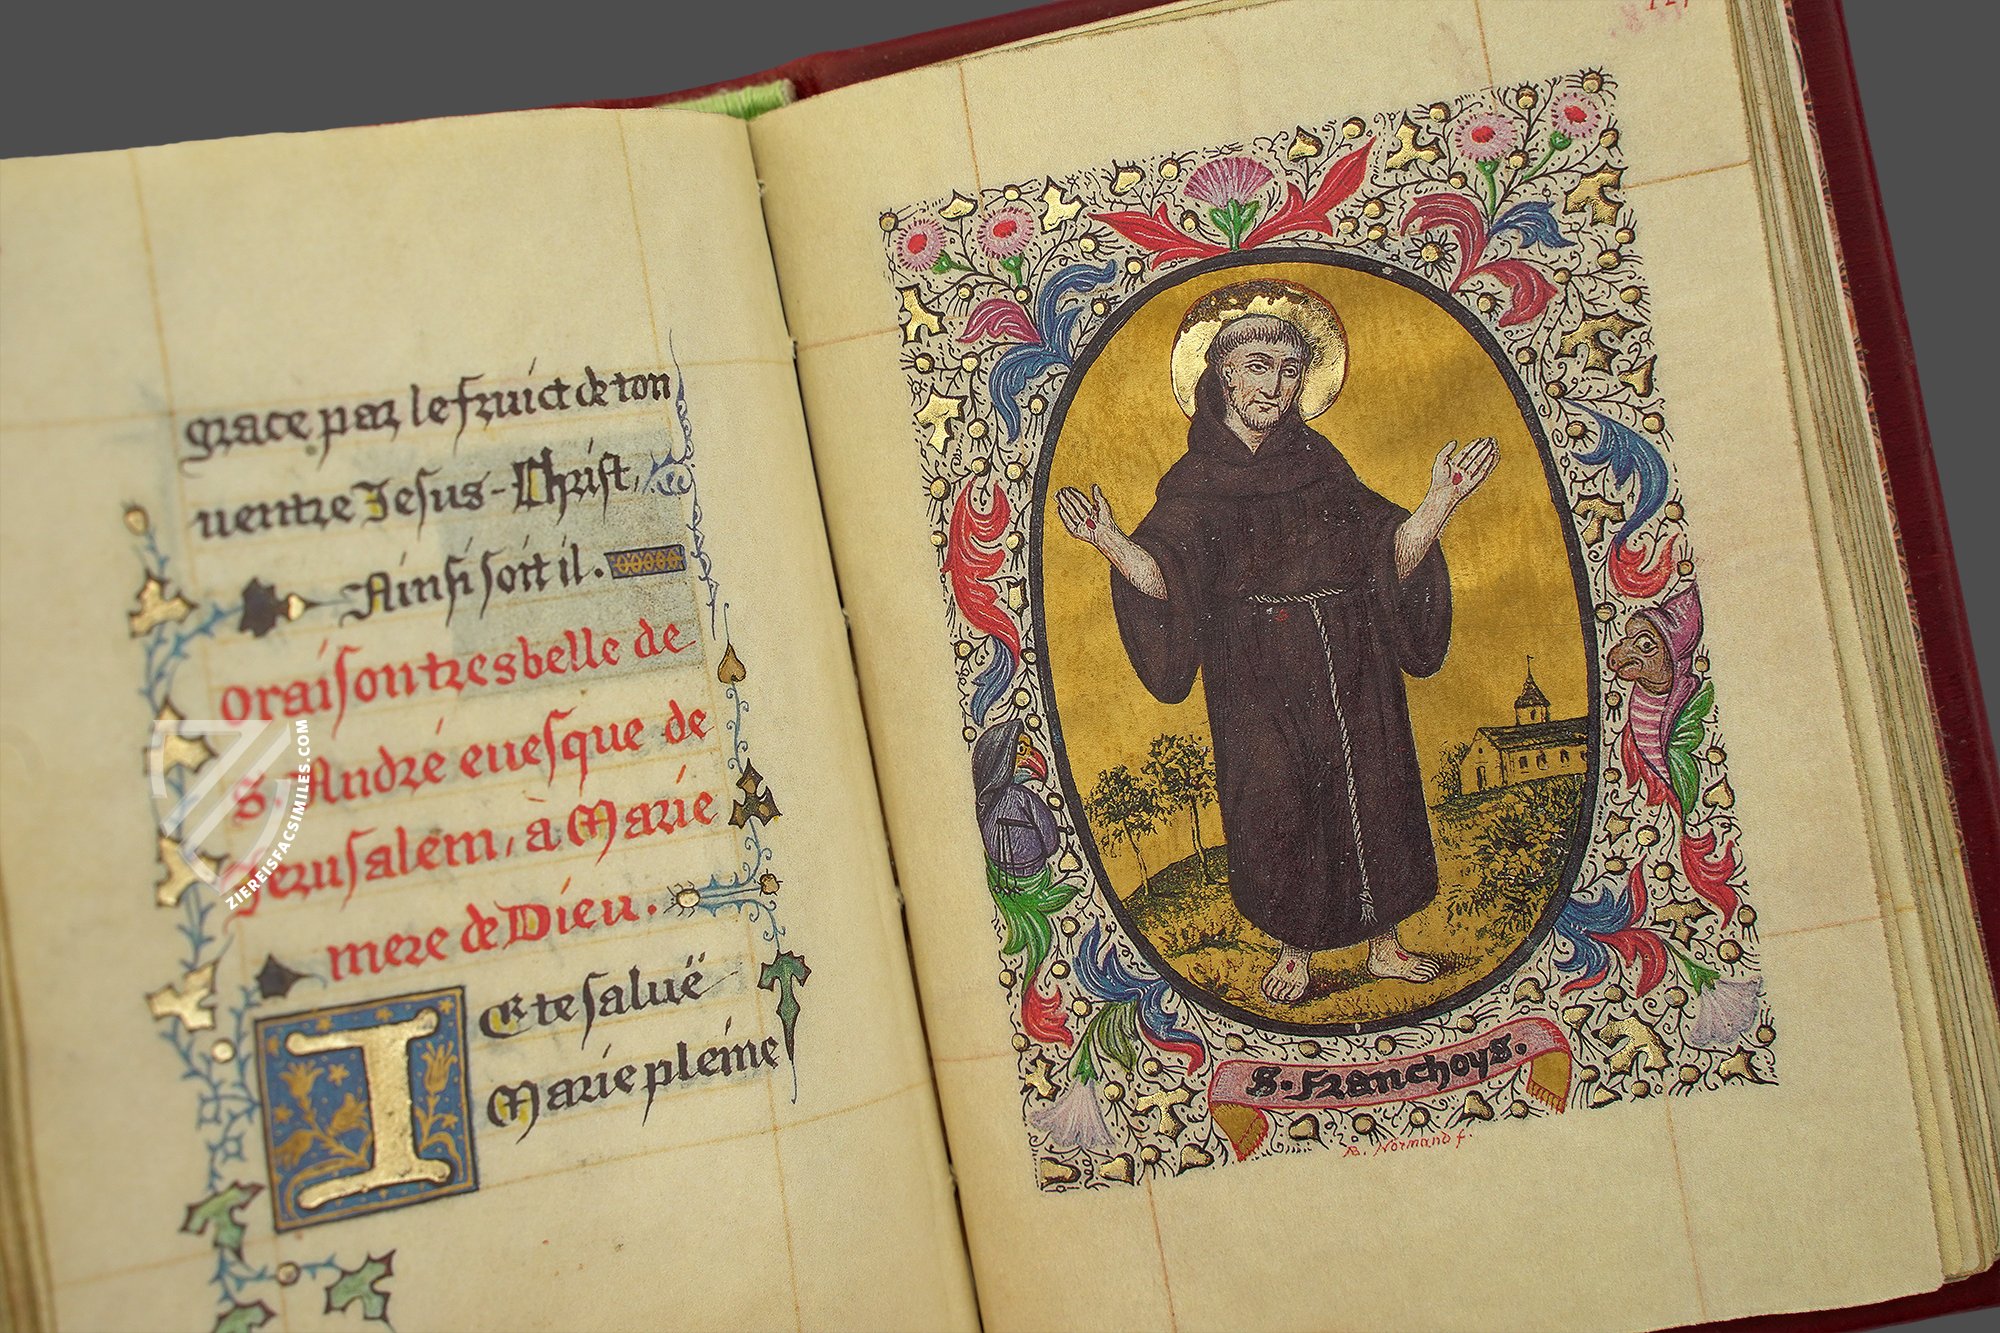 grace par le fruict de ton
ventre Jesus-Christ,
Ainsi soit il.
Oraison tres belle de
S. André evesque de
Jerusalem, à Marie
mere de Dieu.
Je te saluë
Marie pleine
S. Franchoys.
B. Normand f.
ZIEREISFACSIMILES.COM